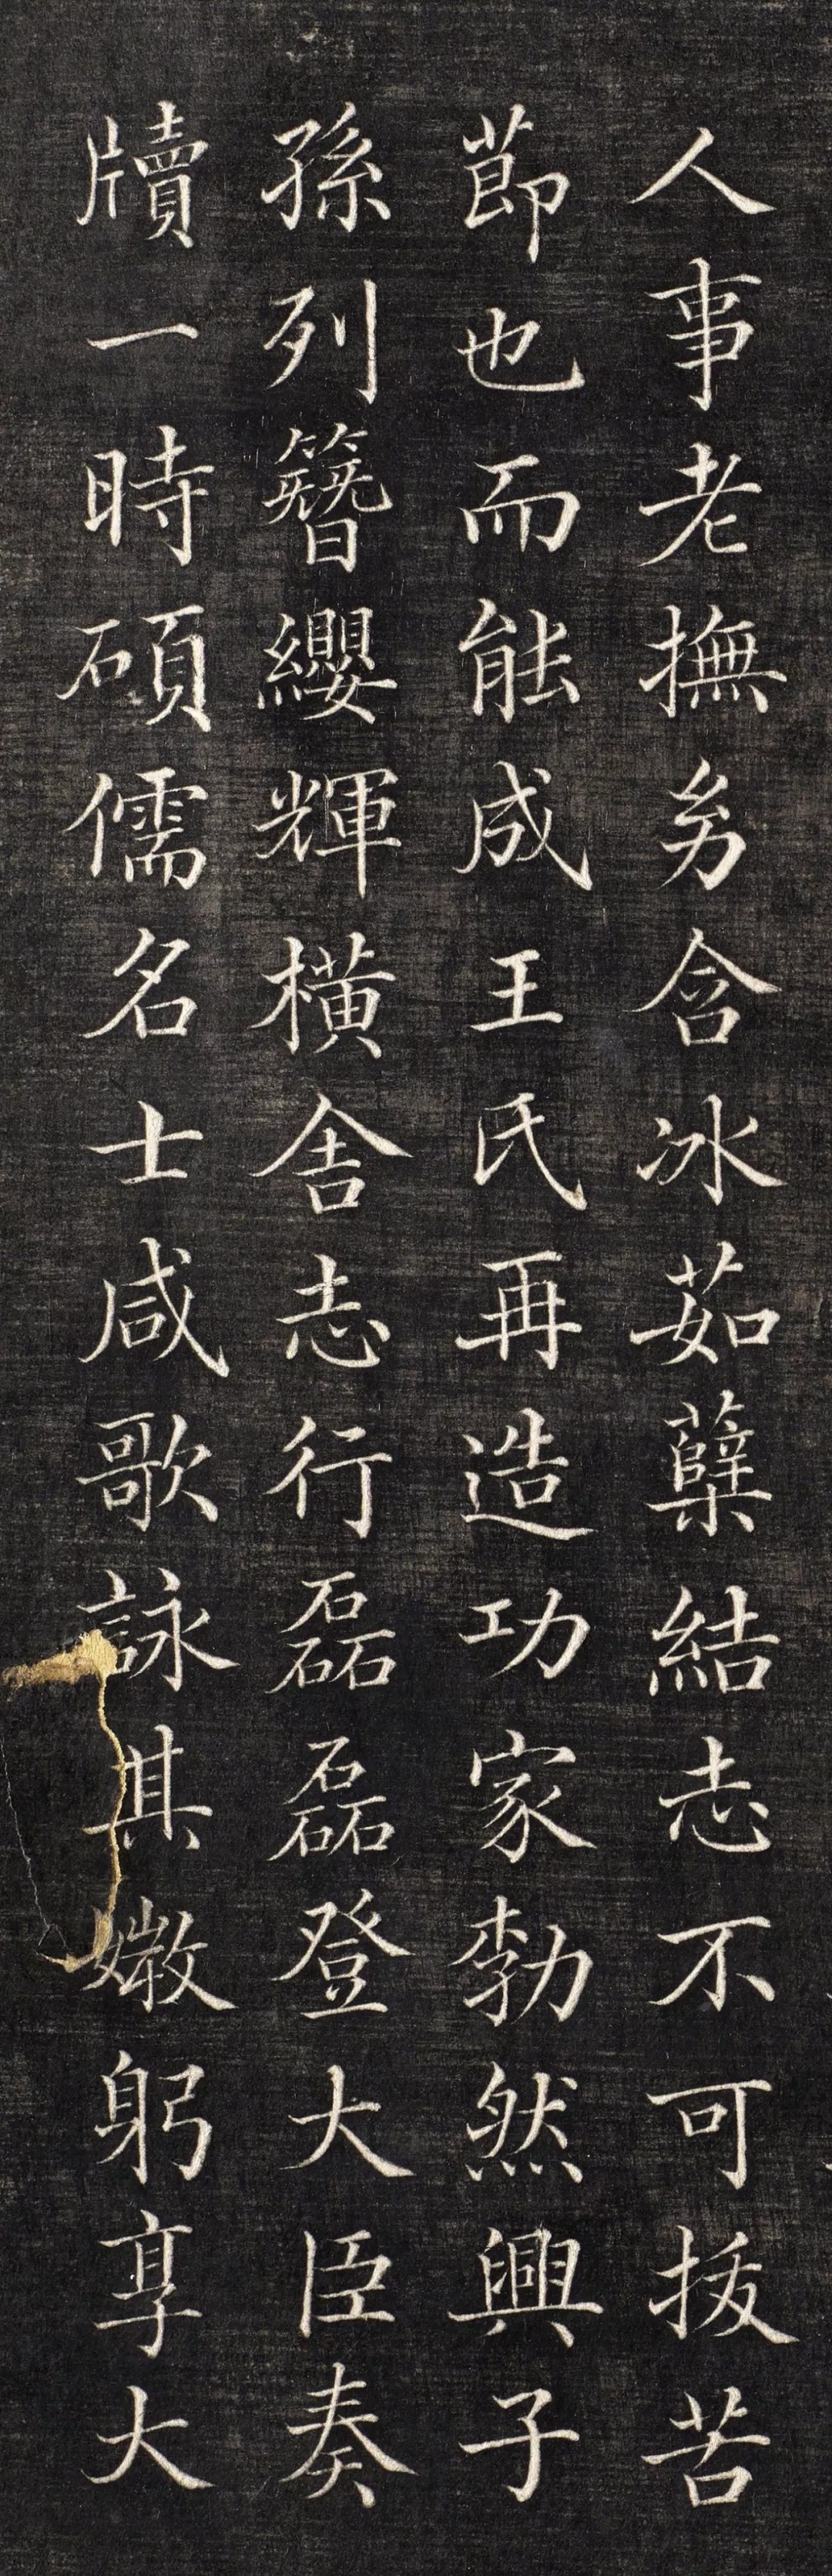 人事老撫㓜含冰茹蘖結志不可拔苦
節也而能成王氏再造功家勃然興子
孫列簪纓輝橫舎志行磊磊登大臣奏
牘一時碩儒名士咸歌詠其媺躬享大